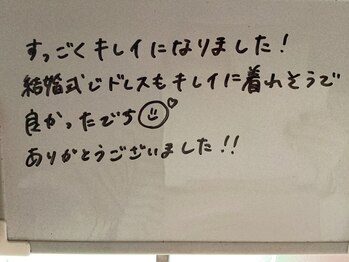 すっごくキレイになりました!
結婚式じドレスもキレイに着れそうで
良かったでち
ありがとうございました!!